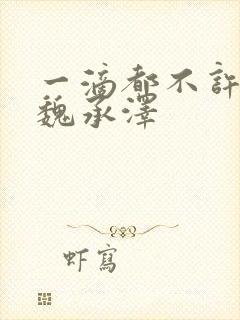 一滴都不許
魏承澤
虾寫